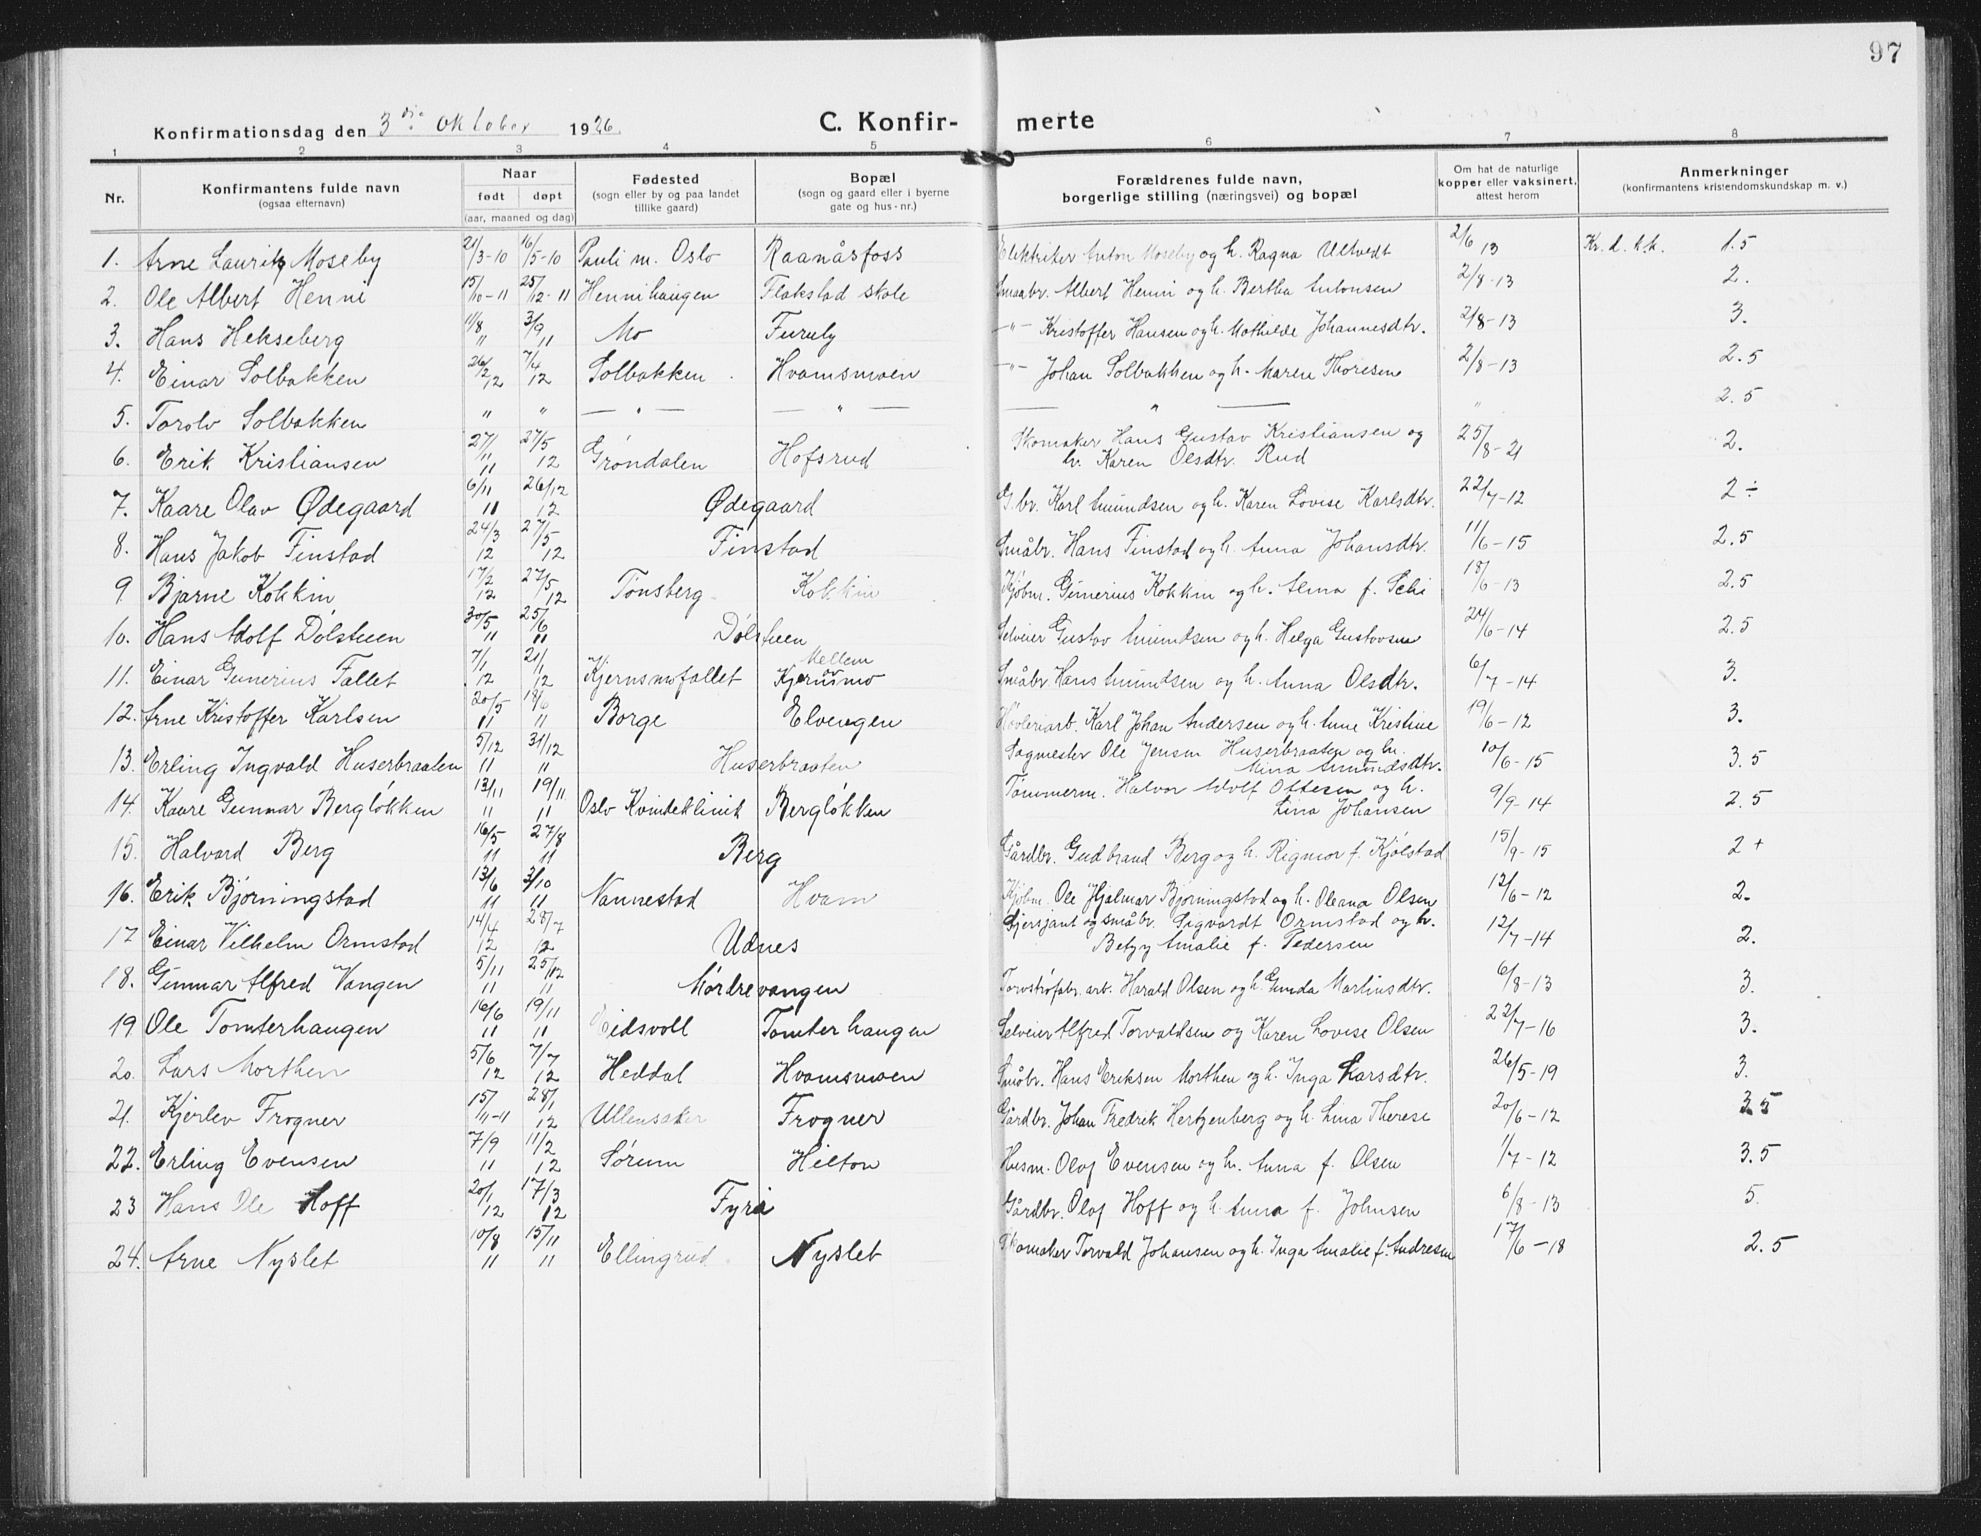 97
Konfirmationsdag den 3die Oktober 1926
C. Konfir- merte
1 2 3 4 5 6 7 8
Nr. | Konfirmantens fulde navn (ogsaa efternavn) | Naar født døpt (aar, maaned og dag) | Fødested (sogn eller by og paa landet tillike gaard) | Bopæl (sogn og gaard eller i byerne gate og hus-nr.) | Forældrenes fulde navn, borgerlige stilling (næringsvei) og bopæl | Om hat de naturlige kopper eller vaksinert, attest herom | Anmerkninger (konfirmantens kristendomskundskap m. v.)
1. Arne Lauritz Moseby 21/3-10 16/5-10 Pauli m. Oslo Raanåsfoss Elektriker Anton Moseby og h. Ragna Ultvedt 2/6 13 Kr. d. kk. 1.5
2. Ole Albert Henni 15/10-11 25/12-11 Hennihaugen Flakstad skole Smaabr. Albert Henni og h. Bertha Antonsen 2/8-13 2.
3. Hans Hekseberg 11/8 11 3/9 11 Mo Furuly -"- Kristoffer Hansen og h. Mathilde Johannesdtr. 2/8-13 3.
4. Einar Solbakken 26/2 12 7/4 12 Solbakken Hvamsmoen -"- Johan Solbakken og h. Maren Thoresen 2/8-13 2.5
5. Torolv Solbakken " " — " — — " — — " — " 2.5
6. Erik Kristiansen 27/11 11 27/5 12 Grøndalen Hofsrud Skomaker Hans Gustav Kristiansen og h. Karen Olsdtr. Rud 25/8-21 2.
7. Kaare Olav Ødegaard 6/11 11 26/12 12 Ødegaard G.br. Karl Amundsen og h. Karen Lovise Karlsdtr. 22/7-12 2 ÷
8. Hans Jakob Finstad 24/3 12 27/5 12 Finstad Småbr. Hans Finstad og h. Anna Johansdtr. 11/6-15 2.5
9 Bjarne Kokkin 17/2 12 27/5 12 Tønsberg Kokkin Kjøbm. Gunerius Kokkin og h. Alma f. 18/6-13 2.5
10. Hans Adolf Dølsteen 30/5 11 25/6 11 Dølsteen Selveier Gustav Amundsen og h. Helga Gustavsen 24/6-14 2.5
11. Einar Gunerius Fallet 7/1 12 21/1 12 Kjernsmofallet Mellem Kjernsmo Småbr Hans Amundsen og h. Anna Olsdtr. 6/7-14 3.
12. Arne Kristoffer Karlsen 20/5 11 18/6 11 Borge Elvengen Høvleriarb. Karl Johan Andersen og h. Anne Kristine 19/6-12 3.
13. Erling Ingvald Huserbraaten 5/12 11 31/12 11 Huserbraaten Sagmester Ole Jensen Huserbraaten og h. Mina Amundsdtr. 10/6-15 3.5
14. Kaare Gunnar Bergløkken 13/11 11 19/11 11 Oslo Kvindeklinik Bergløkken Tømmerm. Halvor Adolf Ottesen og h. Lina Johansen 9/9-14 2.5
15. Halvard Berg 16/5 11 27/8 11 Berg Gårdbr. Gudbrand Berg og h. Rigmor f. Kjølstad 15/9-15 2+
16. Erik Bjørningstad 13/6 11 3/10 11 Nannestad Hvam Kjøbm. Ole Hjalmar Bjørningstad og h. Oleana Olsen 12/6-12 2.
17 Einar Vilhelm Ormstad 14/4 12 28/7 12 Udnes Sjersjant og småbr. Sigvardt Ormstad og h. Betzy Amalie f. Pedersen 12/7-14 2.
18. Gunnar Alfred Vangen 5/11 11 25/12 11 Mørdrevangen Torvstrøfabr. arb. Harald Olsen og h. Gunda Martinsdtr. 6/8-13 3.
19 Ole Tomterhaugen 16/6 11 19/11 11 Eidsvoll Tomterhaugen Selveier Alfred Torvaldsen og Karen Lovise Olsen 22/7-16 3.
20. Lars Morthen 5/6 12 7/7 12 Heddal Hvamsmoen Småbr. Hans Eriksen Morthen og h. Inga Larsdtr. 26/5-19 3.
21. Kjerlev Frogner 15/11-11 28/1 12 Ullensaker Frogner Gårdbr. Johan Fredrik Hertzenberg og h. Lina Therese 20/6-12 3.5
22. Erling Evensen 7/9 11 11/2 12 Sørum Hilton Husm. Olaf Evensen og h. Anna f. Olsen 1/7-12 3.5
23 Hans Ole Hoff 20/1 12 17/3 12 Fyri Gårdbr. Olaf Hoff og h. Anna f. Johnsen 6/8-13 5.
24. Arne Nyslet 10/8 11 15/11 11 Ellingrud Nyslet Skomaker Torvald Johansen og h. Inga Amalie f. Andresen 17/6-18 2.5